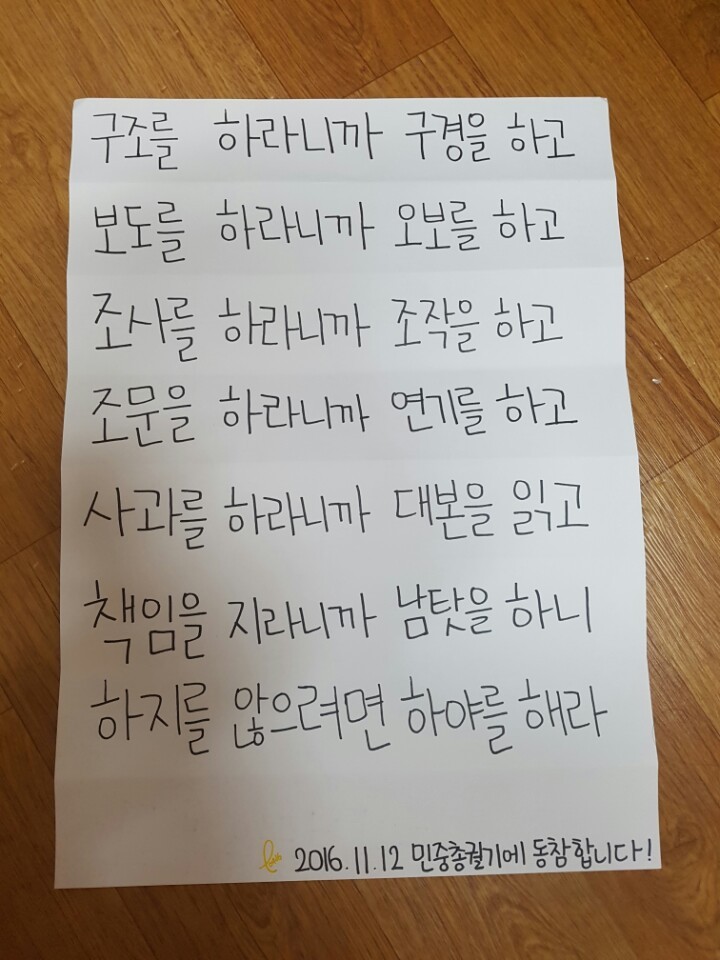 구조를 하라니까 구경을 하고
보도를 하라니까 오보를 하고
조사를 하라니까 조작을 하고
조문을 하라니까 연기를 하고
사과를 하라니까 대본을 읽고
책임을 지라니까 남탓을 하니
하지를 않으려면 하야를 해라
2016.11.12 민중총궐기에 동참합니다!